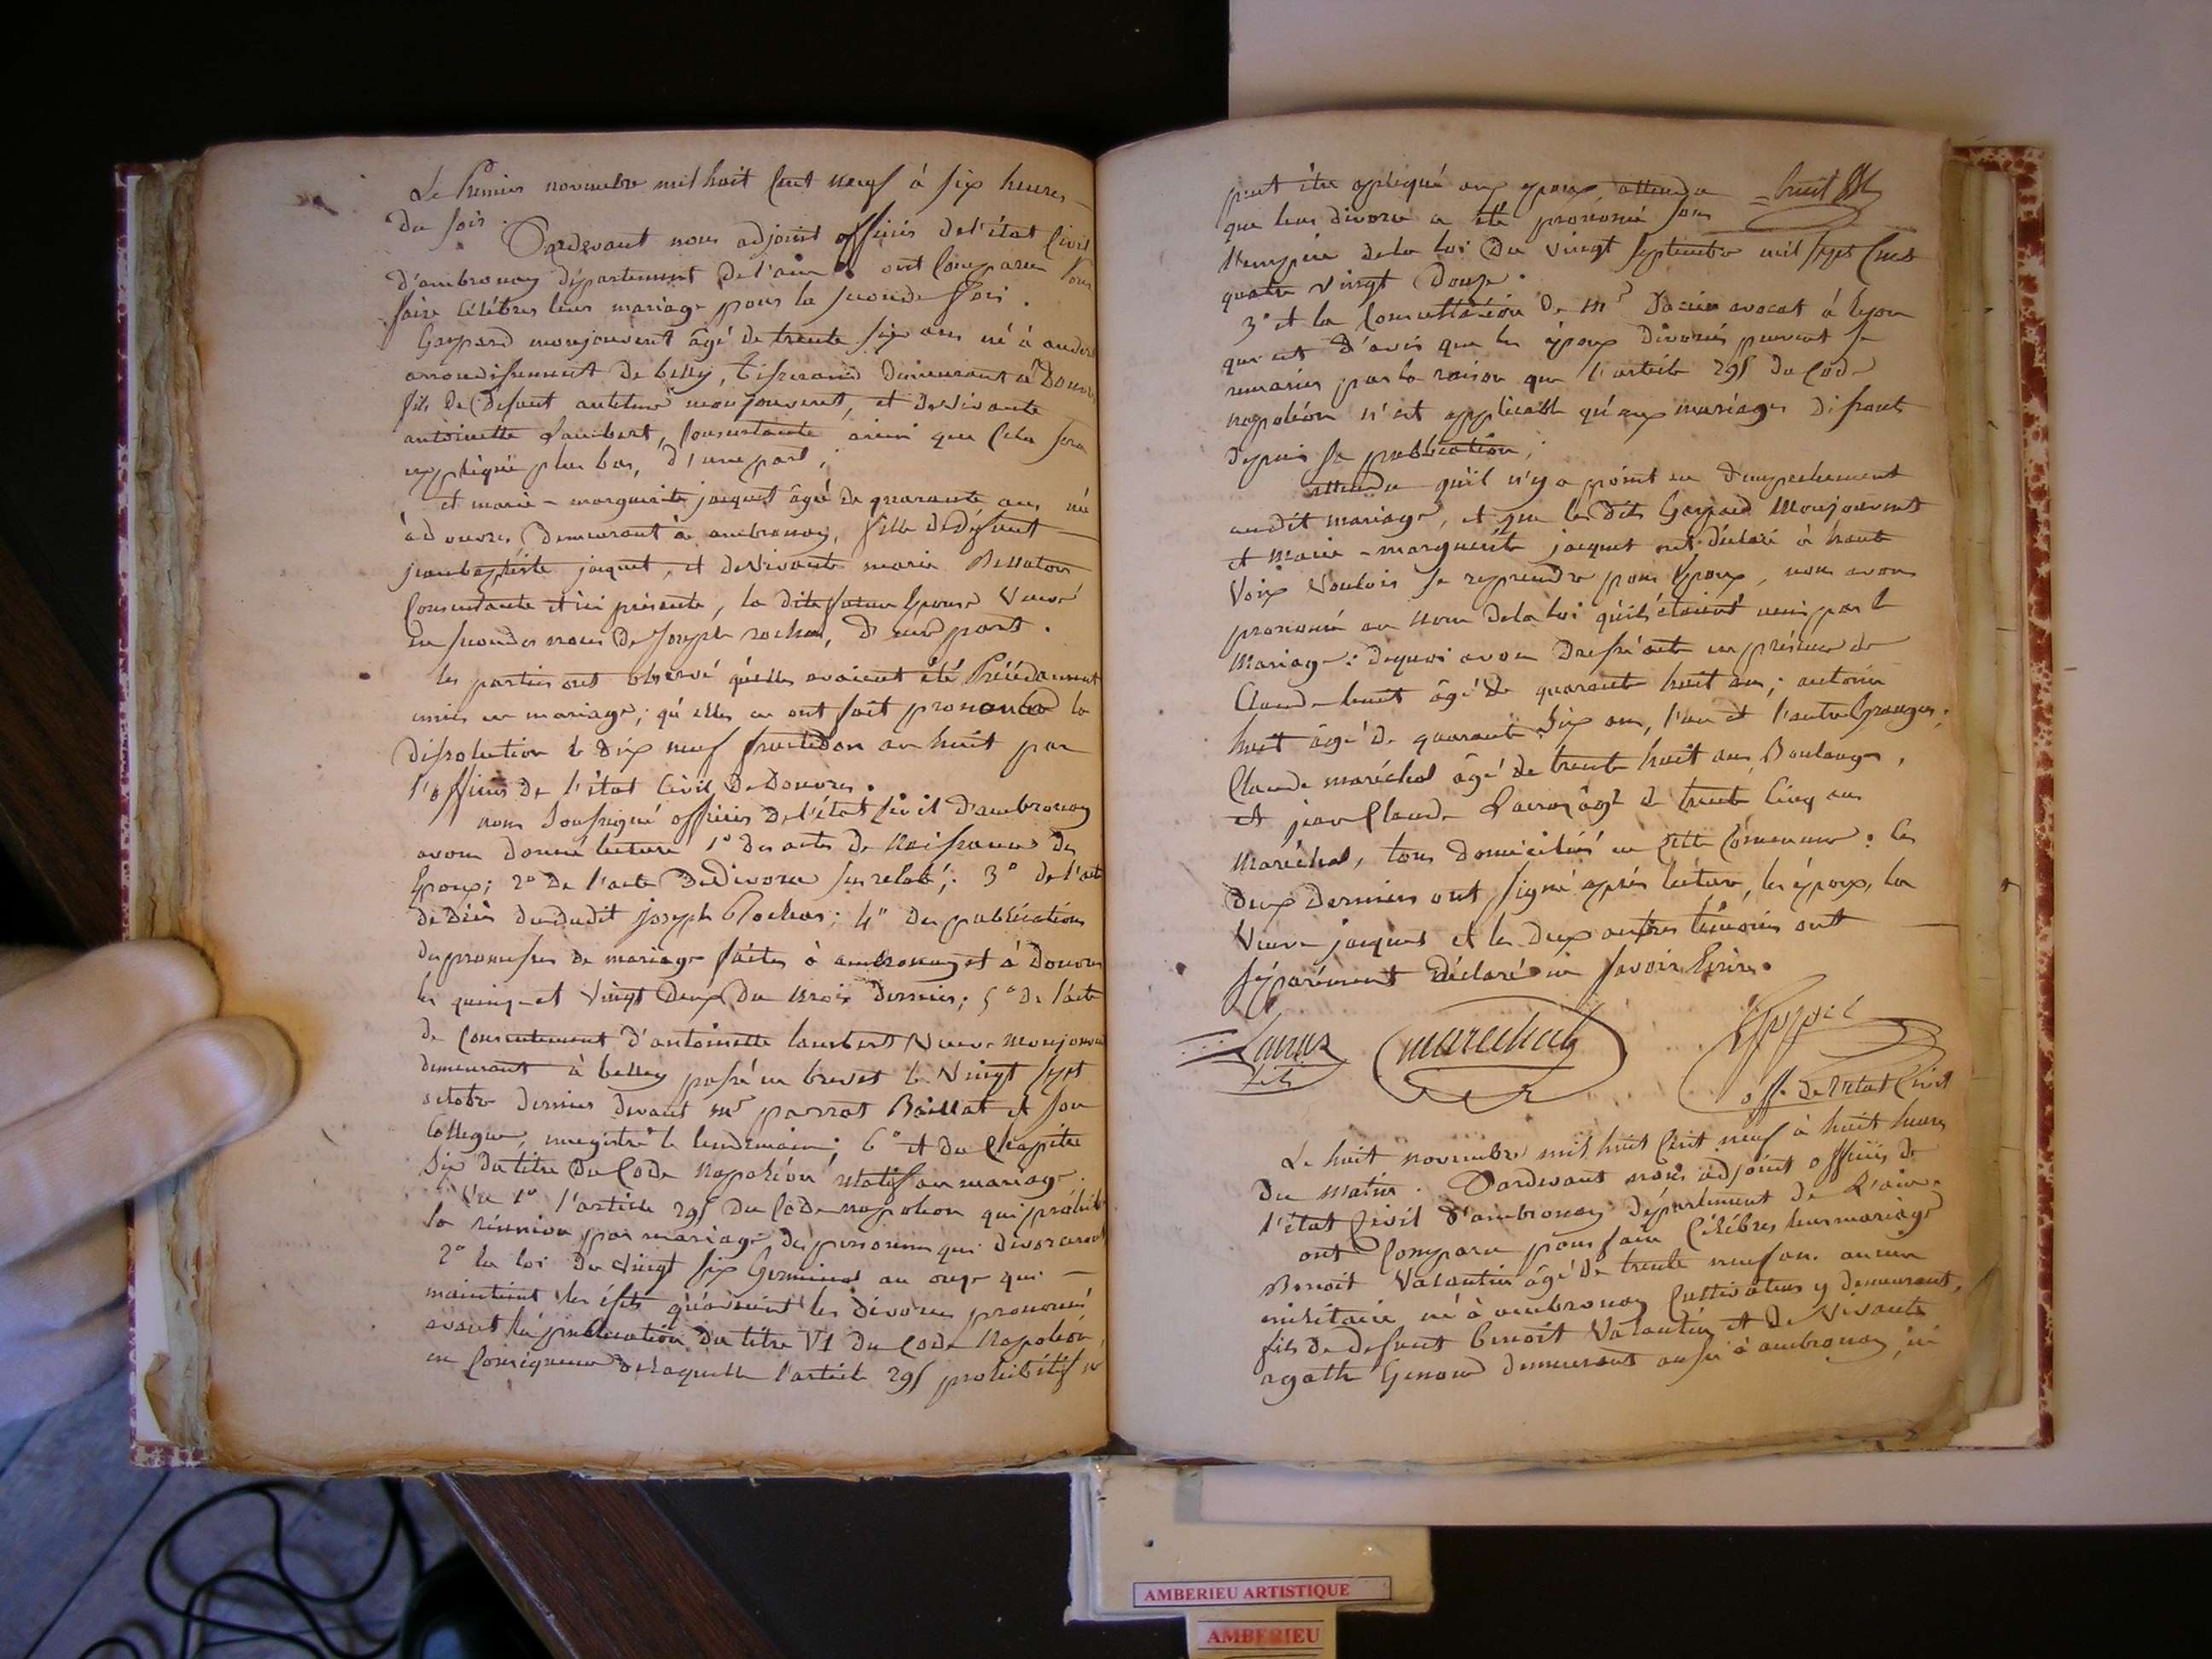 Le Premier novembre mil huit Cent neuf à six heures
du soir. Pardevant nous adjoint officier de l'état Civil
d'ambronay département de l'ain ont Comparu Pour
faire Célébrer leur mariage pour la seconde fois.
Gaspard monjouvent âgé de trente six ans né à
arrondissement de belley, tisserand demeurant à Douvres
fils de défunt monjouvent, et de vivante
antoinette Lambert, Consentante ainsi que Cela sera
expliqué plus bas, d'une part;
et marie-marguerite jacquet âgée de quarante ans née
à douvres, demeurant à ambronay, fille de défunt
jean baptiste jacquet, et de vivante marie
Consentante et ici présente, la dite future Epouse Veuve
en secondes noces de Joseph rochas, d'autre part.
les parties ont observé qu'elles avaient été Précédemment
unies en mariage; qu'elles en ont fait prononcer la
dissolution le dix neuf fructidor an huit par
l'officier de l'état Civil de Douvres.
nous soussigné officier de l'état Civil d'ambronay
avons donné lecture 1° des actes de Naissance des
Epoux; 2° de l'acte de divorce sus relaté; 3° de l'acte
de décès dudit joseph Rochas; 4° des publications
des promesses de mariage faites à ambronay et à Douvres
les quinze et Vingt deux du mois dernier; 5° de l'acte
de Consentement d'antoinette lambert Veuve monjouvent
demeurant à belley passé en brevet le Vingt sept
octobre dernier devant mr parrat Baillat et son
Collegue, enregistré le lendemain; 6° et du Chapitre
six du titre du Code Napoléon relatif au mariage.
Vu 1° l'article 295 du Code napoléon qui prohibe
la réunion par mariage des personnes qui divorceront
2° la loi du Vingt six Germinal an onze qui
maintient les effets qu'avaient les divorces prononcés
avant la publication du titre VI du Code Napoléon,
en Conséquence de laquelle l'article 295 prohibitif ne
peut être apliqué aux epoux attendu = huit
que leur divorce a été prononcé sous
l'empire de la loi du vingt septembre mil sept Cent
quatre vingt douze.
3° et la Consultation de mr avocat à lyon
qui est d'avis que les époux divorcés peuvent se
remarier par la raison que l'article 295 du Code
napoléon n'est applicable qu'aux mariages dissouts
depuis sa publication;
attendu qu'il n'y a point eu d'empechement
audit mariage, et que les dits Gaspard Monjouvent
et Marie-marguerite jacquet ont déclaré à haute
Voix Vouloir se reprendre pour Epoux, nous avons
prononcé au nom de la loi qu'ils étaient unis par le
Mariage: de quoi avons dressé acte en présence de
Claude huit âgé de quarante huit ans; antoine
huit âgé de quarante six ans, l'un et l'autre Grangers;
Claude maréchal âgé de trente huit ans, Boulanger,
et jean Claude âgé de trente Cinq ans
Maréchal, tous domiciliés en Cette Commune: les
deux derniers ont signé après lecture, les époux, la
Veuve jacquet et les deux autres témoins ont
séparément déclaré ne savoir Ecrire.
marechal
off. de l'état Civil
Le huit novembre mil huit Cent neuf à huit heures
du Matin. Pardevant nous adjoint officier de
l'état Civil d'ambronay département de L'ain
ont Comparu pour faire Célébrer leur mariage
Benoit Valantin âgé de trente neuf ans ancien
militaire né à ambronay Cultivateur y demeurant,
fils de defunt benoit Valantin et de Vivante
agathe demeurant aussi à ambronay, ici
AMBERIEU ARTISTIQUE
AMBERIEU